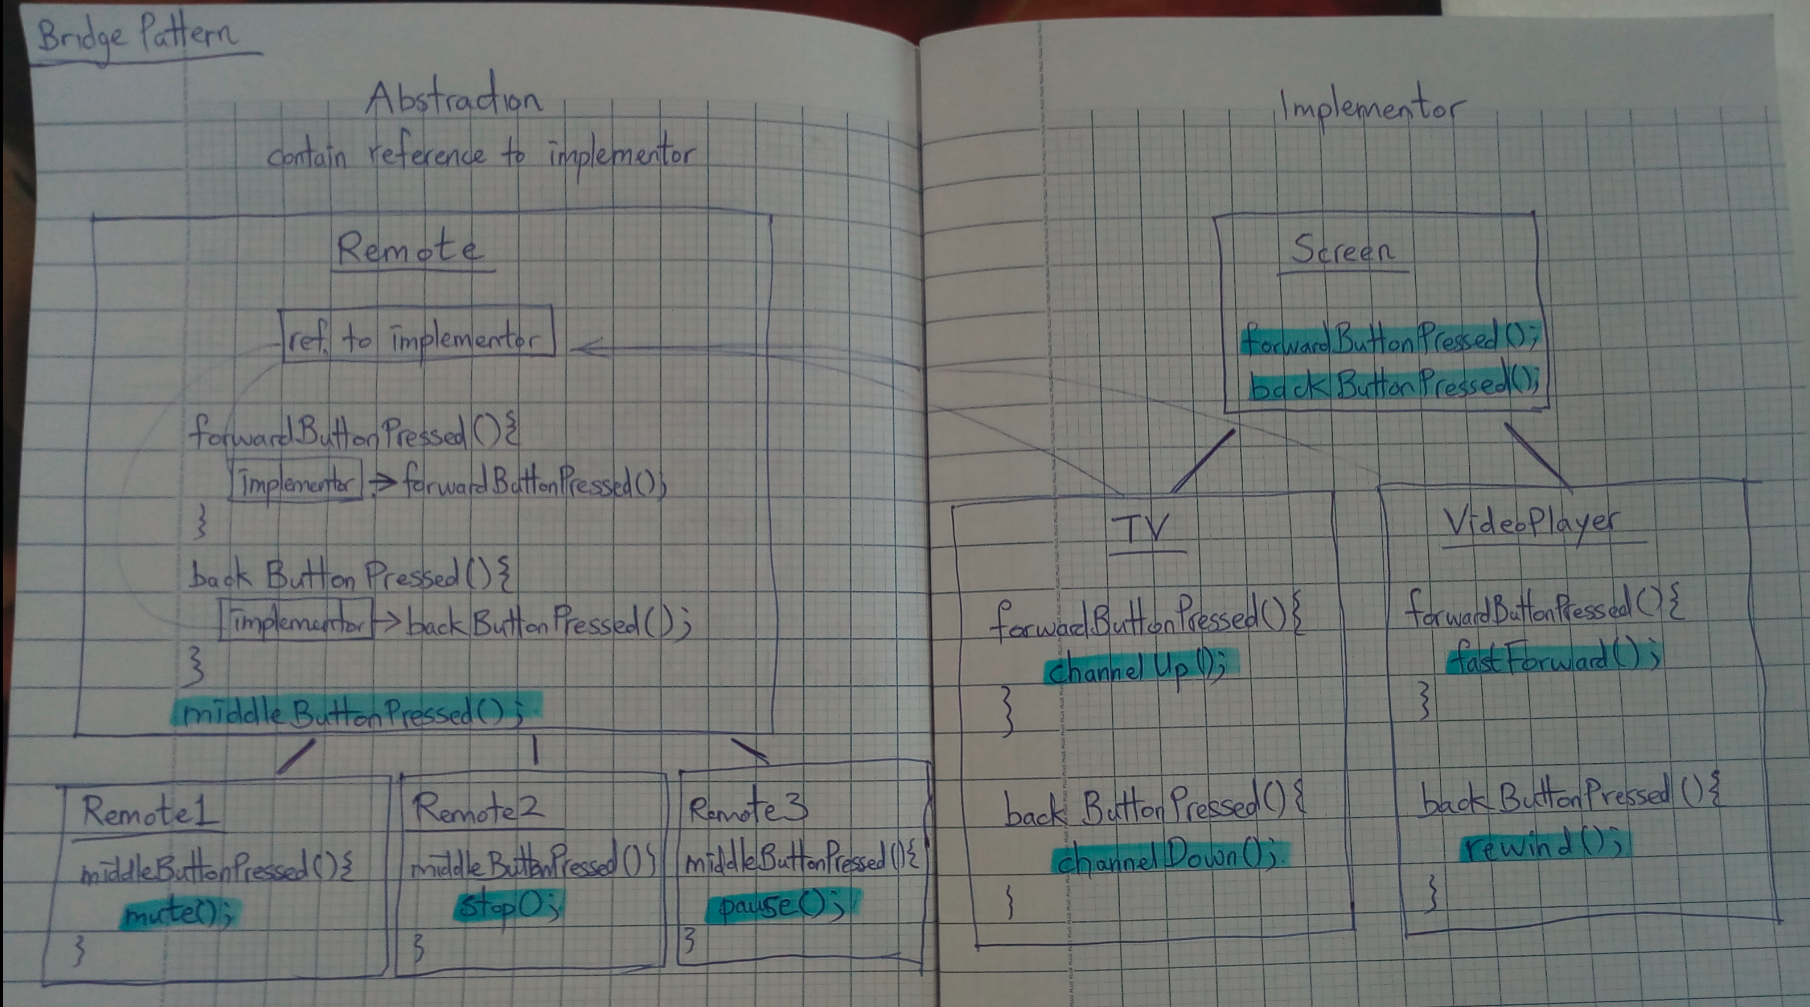 Bridge Pattern
Abstraction
contain reference to implementor
Remote
ref. to implementor
forwardButtonPressed(){
implementor → forwardButtonPressed();
}
backButtonPressed(){
implementor → backButtonPressed();
}
middleButtonPressed();
Remote1
middleButtonPressed(){
mute();
}
Remote2
middleButtonPressed(){
stop();
}
Remote3
middleButtonPressed(){
pause();
}
Implementor
Screen
forwardButtonPressed();
backButtonPressed();
TV
forwardButtonPressed(){
channelUp();
}
backButtonPressed(){
channelDown();
}
VideoPlayer
forwardButtonPressed(){
fastForward();
}
backButtonPressed(){
rewind();
}